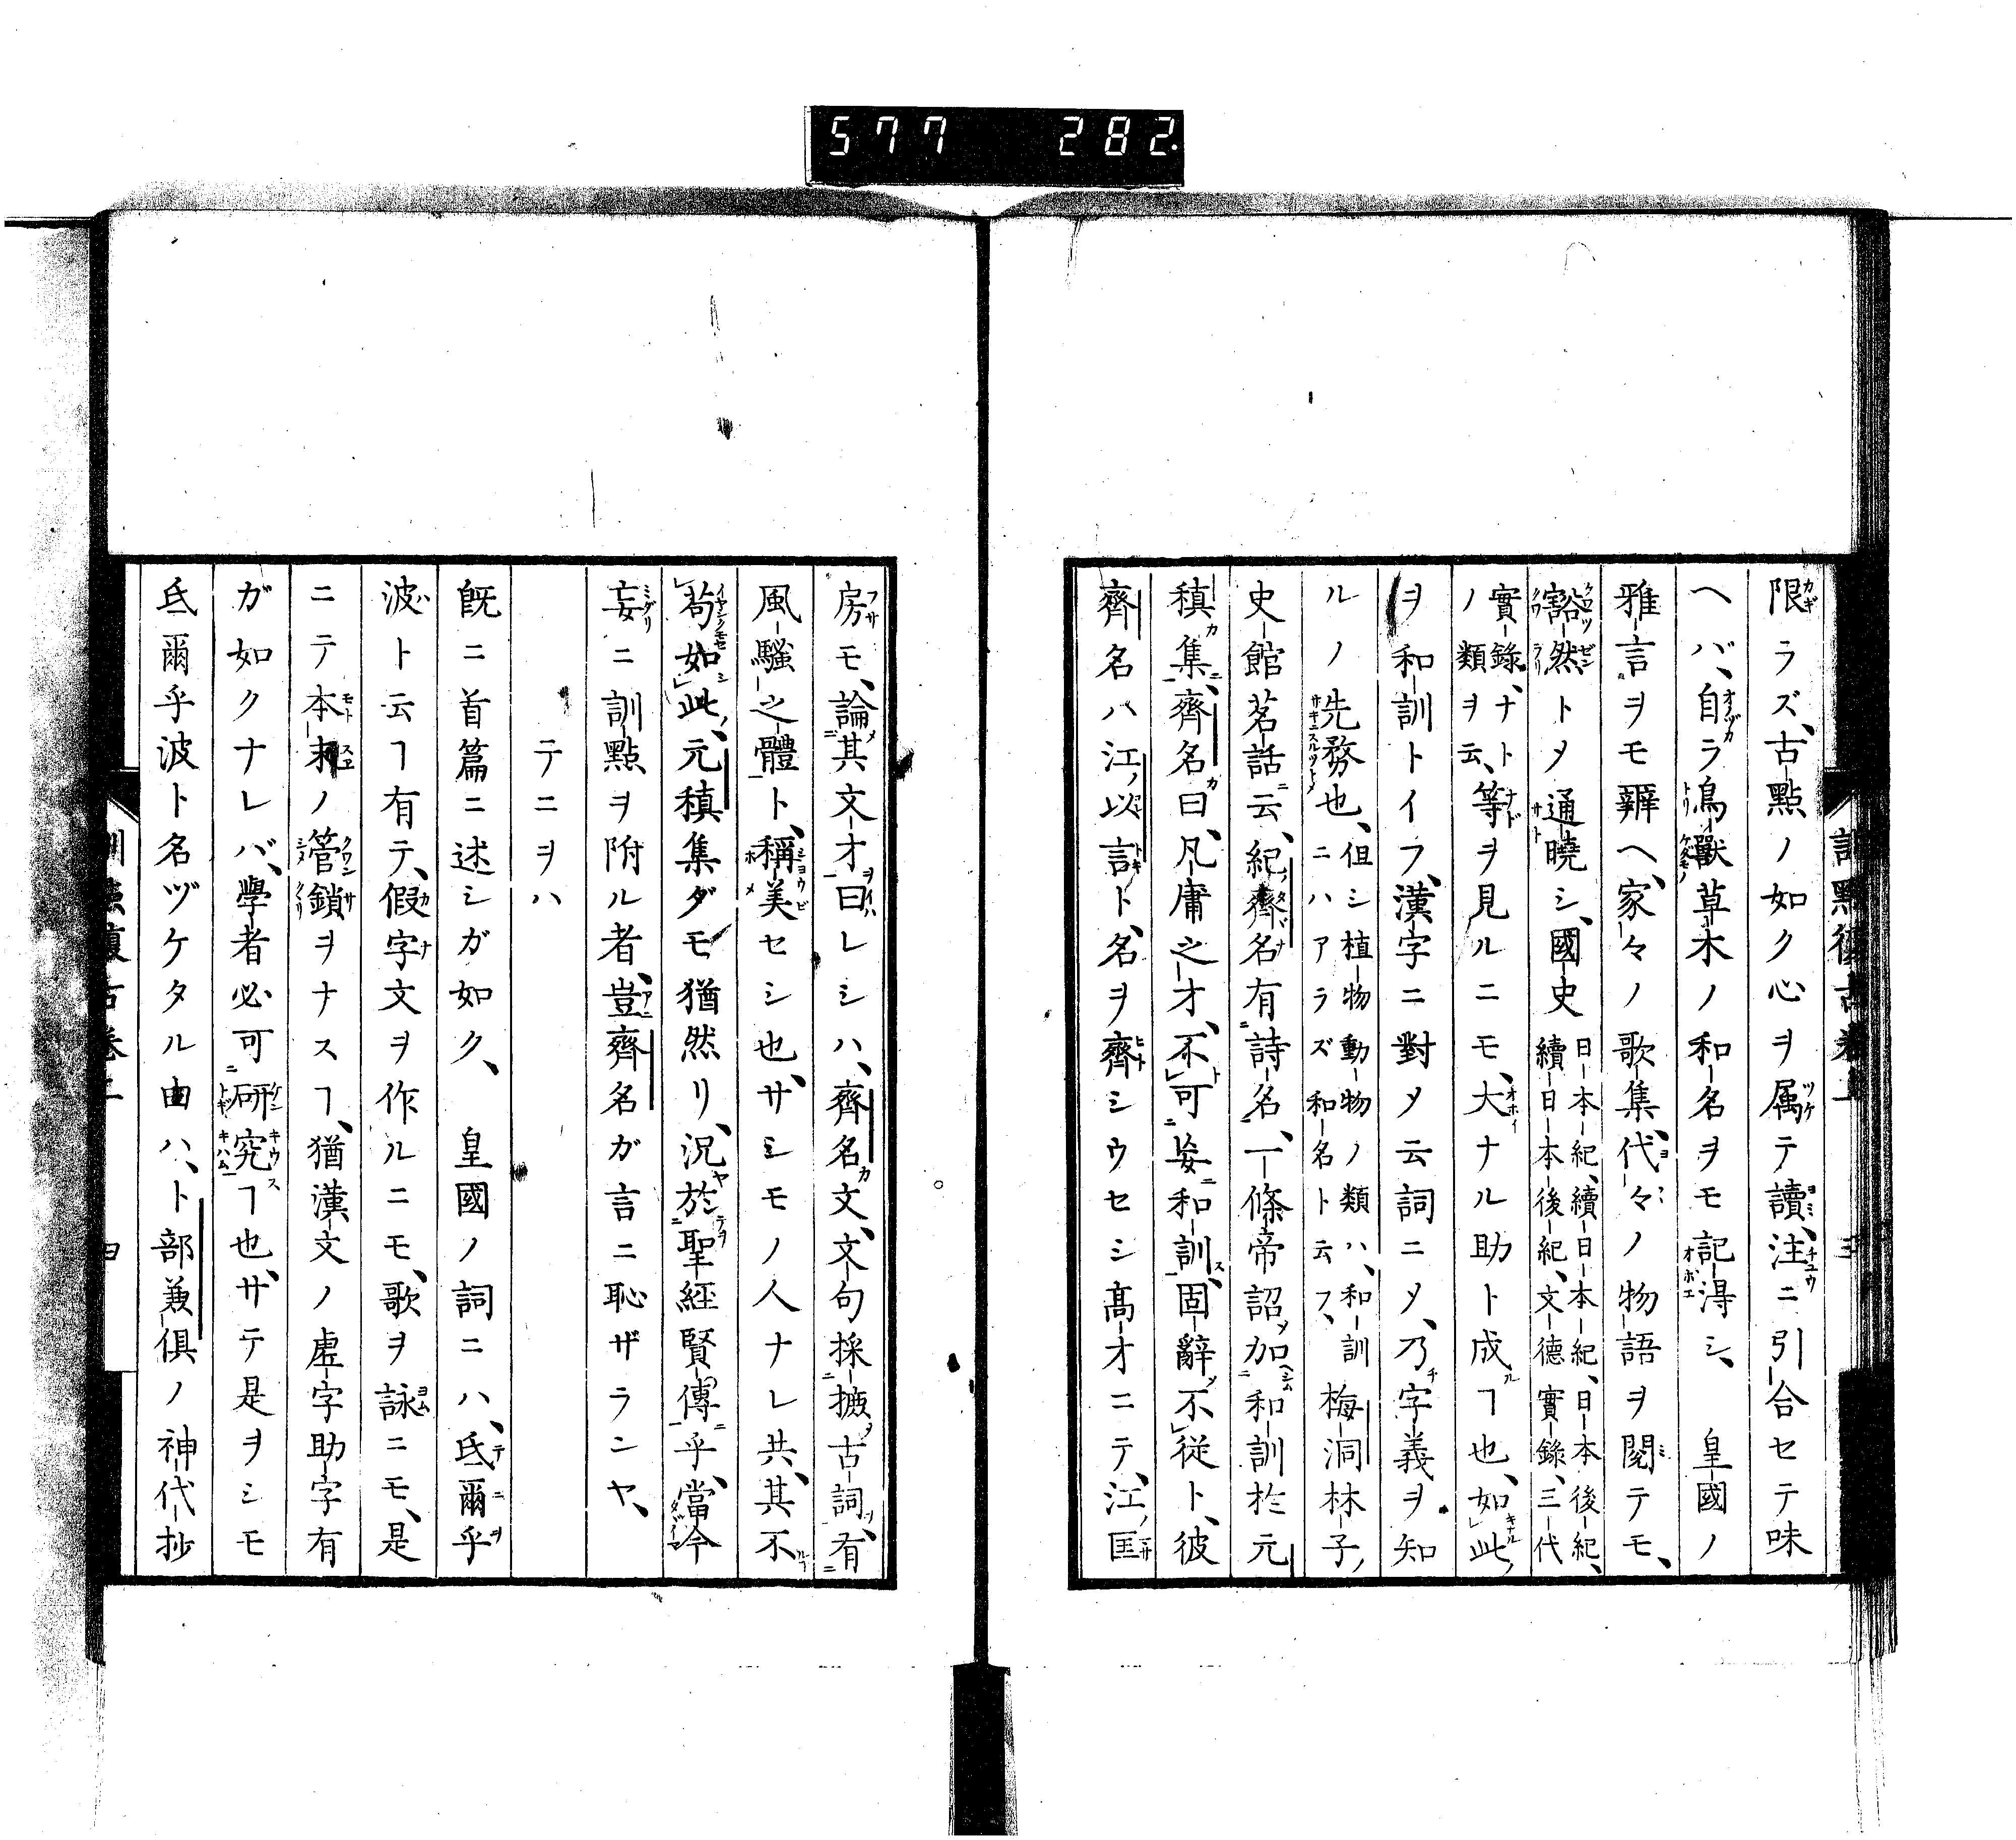 577 282.
限ラズ、古點ノ如ク心ヲ属テ讀、注ニ引合セテ味
ヘバ、自ラ鳥獸草木ノ和名ヲモ記得シ、皇國ノ
雅言ヲモ辨ヘ、家々ノ歌集、代々ノ物語ヲ閲テモ、
豁然トメ通曉シ、國史日本紀、續日本紀、日本後紀、續日本後紀、文德實錄、三代
實錄、ナトノ類ヲ云、等ヲ見ルニモ、大ナル助ト成ヿ也、如此
ヲ和訓トイフ、漢字ニ對メ云詞ニメ、乃字義ヲ知
ルノ先務也、但シ植物動物ノ類ハ、和訓ニハアラズ和名ト云フ、梅洞林子
史館茗話云、紀齊名有詩名、一條帝詔加和訓於元
稹集、齊名曰、凡庸之才、不可妄和訓、固辭不從ト、彼
齊名ハ江以言ト、名ヲ齊シウセシ高才ニテ、江匡
房モ、論其文才曰レシハ、齊名文、文句採摭古詞、有
風騷之體ト、稱美セシ也、サシモノ人ナレ共、其不
苟如此、元稹集ダモ猶然リ、況於聖經賢傳乎、當今
妄ニ訓點ヲ附ル者、豈齊名ガ言ニ恥ザランヤ、
テニヲハ
既ニ首篇ニ述シガ如ク、皇國ノ詞ニハ、氐爾乎
波ト云ヿ有テ、假字文ヲ作ルニモ、歌ヲ詠ニモ、是
ニテ本末ノ管鎖ヲナスヿ、猶漢文ノ虛字助字有
ガ如クナレバ、學者必可研究ヿ也、サテ是ヲシモ
氐爾乎波ト名ヅケタル由ハ、卜部兼倶ノ神代抄